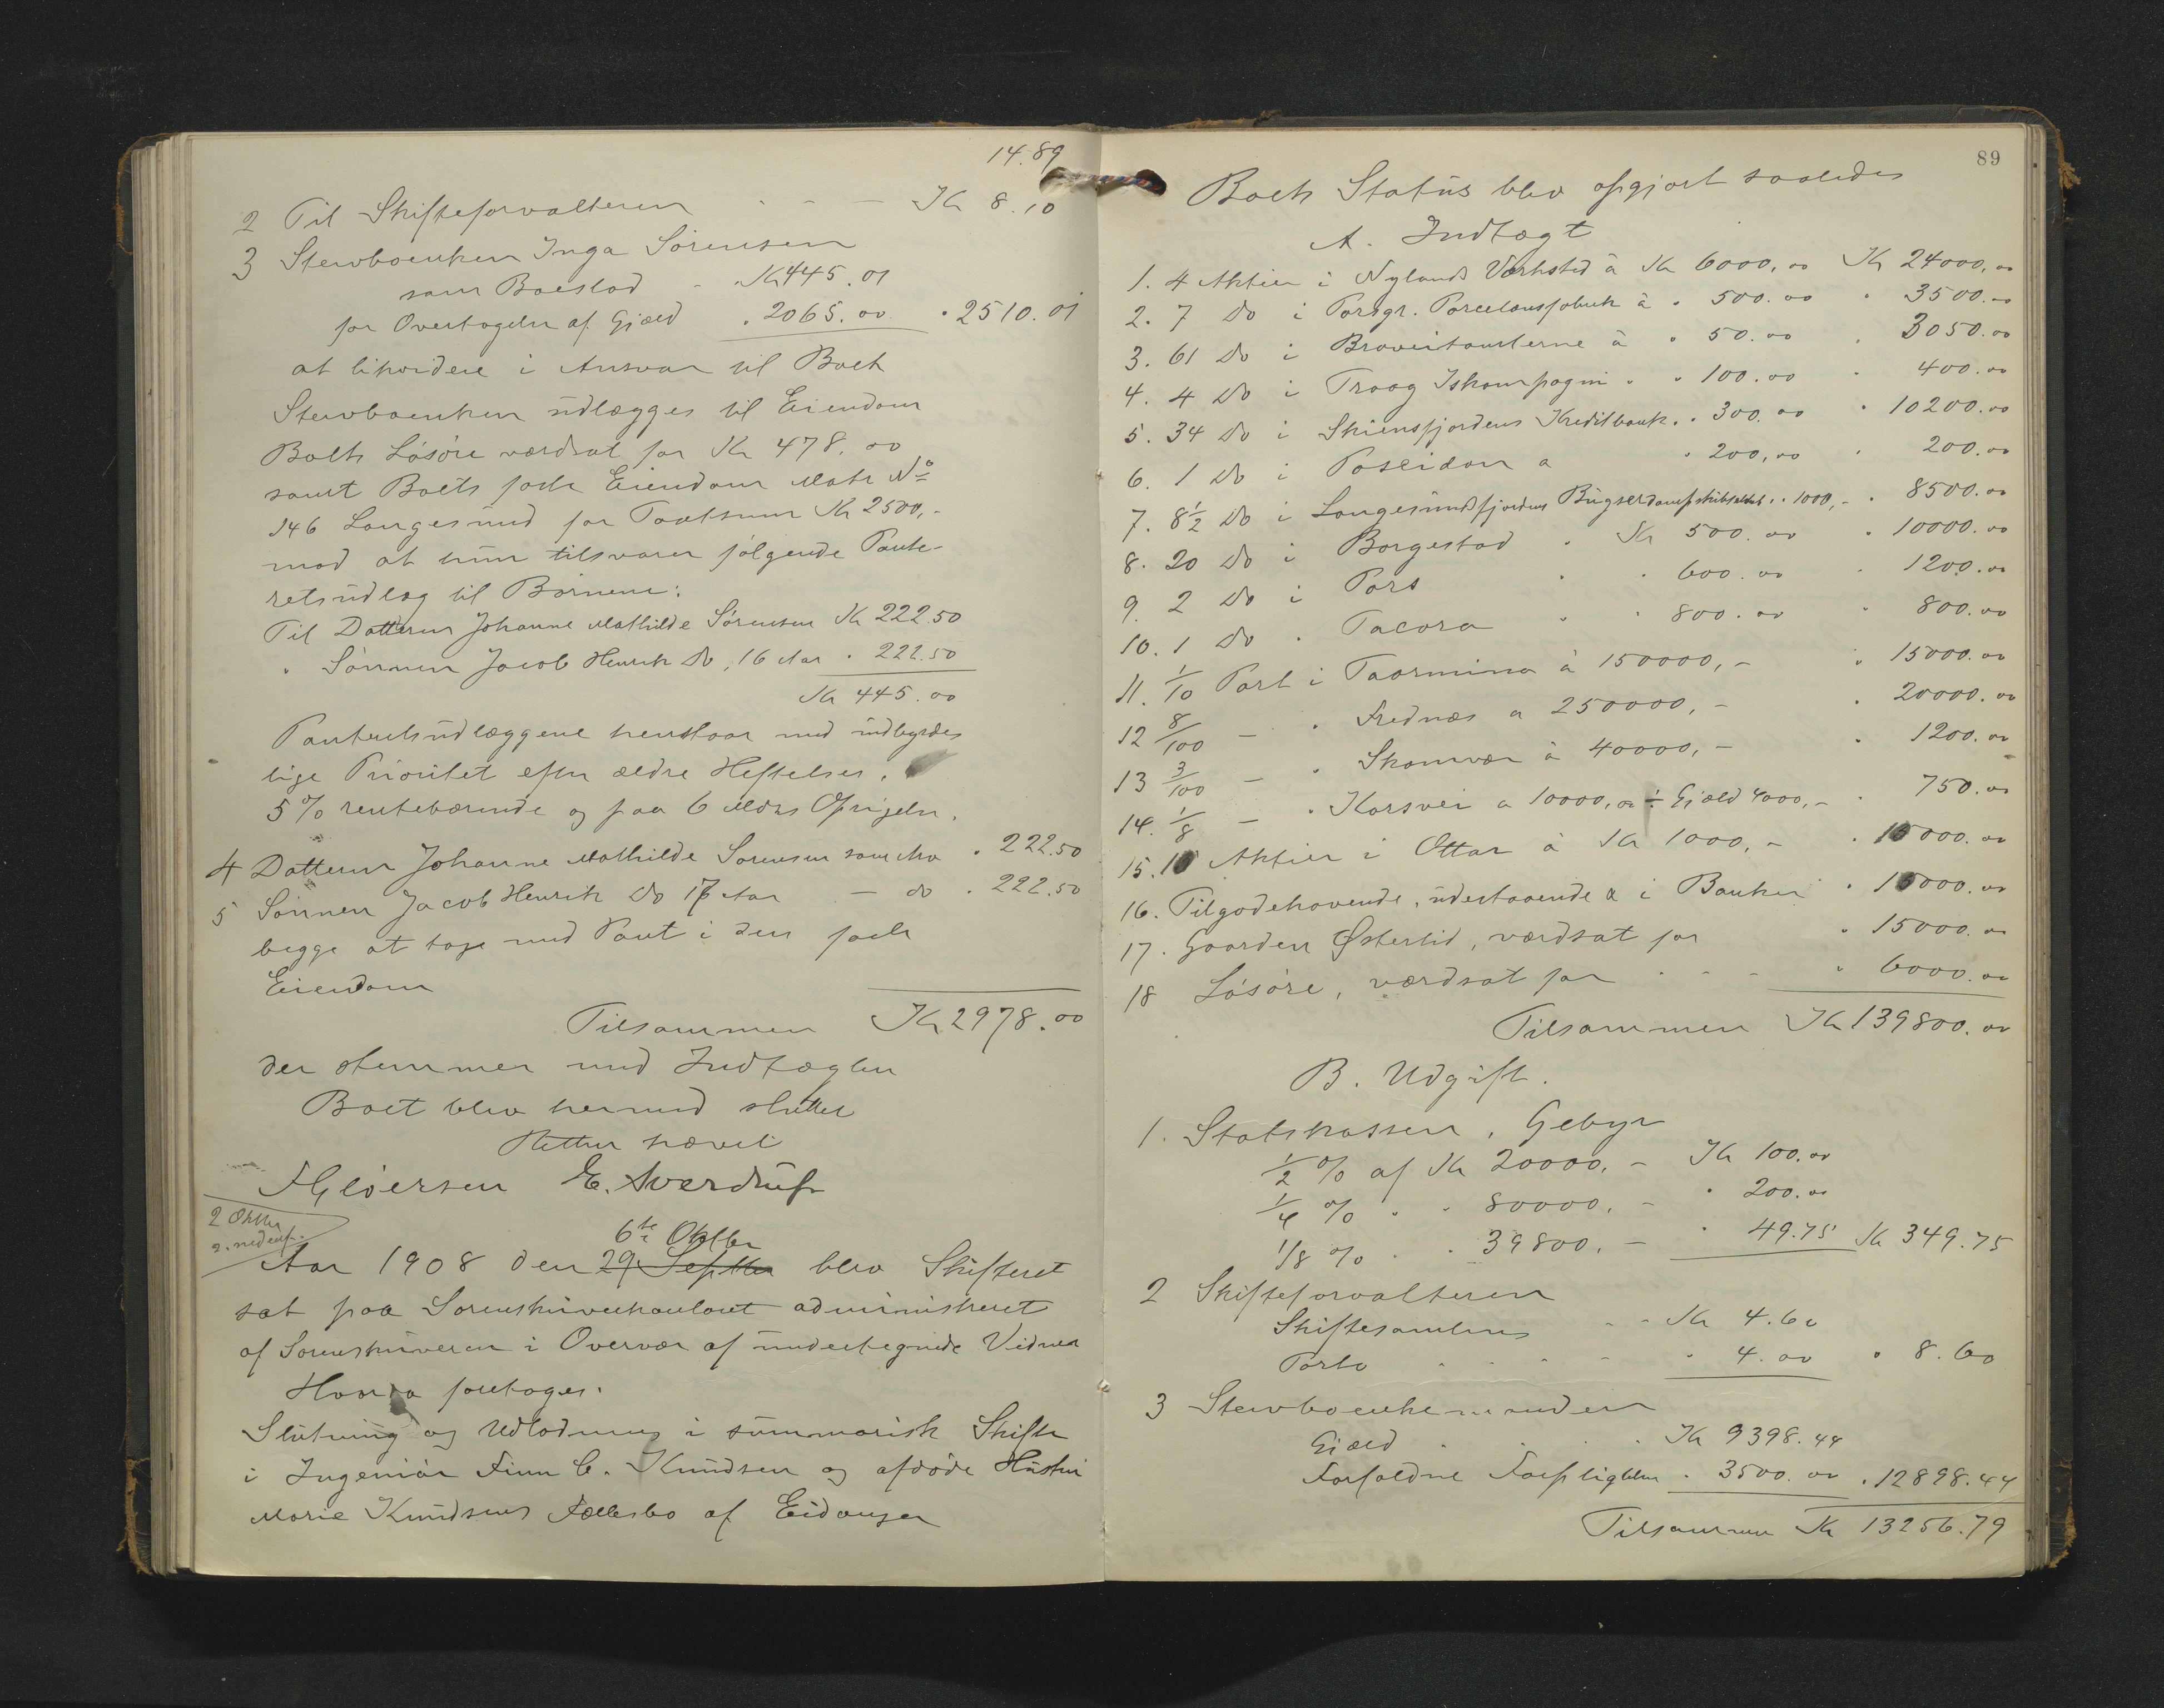 14.89
2 Til Skifteforvalteren - - - Kr 8.10
3 Stervboenken Inga Sörensen
som Boeslod - " Kr 445.01
for Overtagelse af Gjæld " 2065.00 " 2510.01
at likvidere i Ansvar til Boet
Stervboenken udlægges til Eiendom
Boets Lösöre værdsat for Kr 478.00
samt Boets faste Eiendom Matr No
146 Langesund for Taxtsum Kr 2500,-
mod at hun tilsvarer fölgende Pante-
retsudlæg til Börnene:
Til Datteren Johanne Mathilde Sörensen Kr 222.50
" Sönnen Jacob Henrik do, 16 Aar " 222.50
Kr 445.00
Panteretsudlæggene henstaar med indbyrdes
lige Prioritet efter ældre Heftelser,
5% rentebærende og paa 6 Mdrs Opsigelse.
4 Datteren Johanne Mathilde Sörensen som Arv " 222.50
5 Sönnen Jacob Henrik do 17 Aar - do " 222.50
begge at tage med Pant i den faste
Eiendom
Tilsammen Kr 2978.00
der stemmer med Indtægten
Boet blev hermed sluttet
Retten hævet
E. Sverdrup
2 Oktbr
2. nedenf.
6te Oktbr
Aar 1908 den 29 Septbr blev Skifteret
sat paa Sorenskriverkontoret administreret
af Sorenskriveren i Overvær af undertegnede Vidner
Hvorda foretoges:
Slutning og Udlodning i summarisk Skifte
i Ingeniör Finn C. Knudsen og afdöde Hustru
Marie Knudsens Fællesbo af Eidanger
89
Boets Status blev opgjort saaledes
A. Indtægt
1. 4 Aktier i Nylands Værksted à Kr 6000,00 Kr 24000,00
2. 7 do i Porsgr. Porcelænsfabrik à " 500.00 " 3500.00
3. 61 do i Braveitomterne à " 50.00 " 3050.00
4. 4 do i Traag Iskompagni " " 100.00 " 400.00
5. 34 do i Skiensfjordens Kreditbank " " 300.00 " 10200.00
6. 1 do i Poseidon a " 200,00 " 200.00
7. 8½ do i Langesundsfjordens Bugserdampskibselskab " " 1000,- " 8500.00
8. 20 do i Borgestad " Kr 500.00 " 10000.00
9. 2 do i Pors " " 600.00 " 1200.00
10. 1 do " Tacora " " 800.00 " 800.00
11. 1/10 Part i Taormina à 150000,- " 15000.00
12 8/100 - " Frednæs a 250000,- " 20000.00
13 3/100 - " Skomvær à 40000,- " 1200.00
14. 1/8 - " Korsvei a 10000,00 ÷ Gjæld 4000,- " 750.00
15. 15 Aktier i Ottar à Kr 1000,- " 15000.00
16. Tilgodehavende, udestaaende & i Banken " 15000.00
17. Gaarden Østerlid, værdsat for " 15000.00
18 Lösöre, værdsat for - - - " 6000.00
Tilsammen Kr 139800.00
B. Udgift.
1. Statskassen, Gebyr
½ % af Kr 20000,- Kr 100.00
¼ % " " 80000,- " 200.00
1/8 % " " 39800,- " 49.75 Kr 349.75
2 Skifteforvalteren
Skiftesamlings - - Kr 4.60
Porto - - - - " 4.00 " 8.60
3 Stervboenkemanden
Gjæld . . . Kr 9398.44
Forfaldne Forpligtelser " 3500.00 " 12898.44
Tilsammen Kr 13256.79